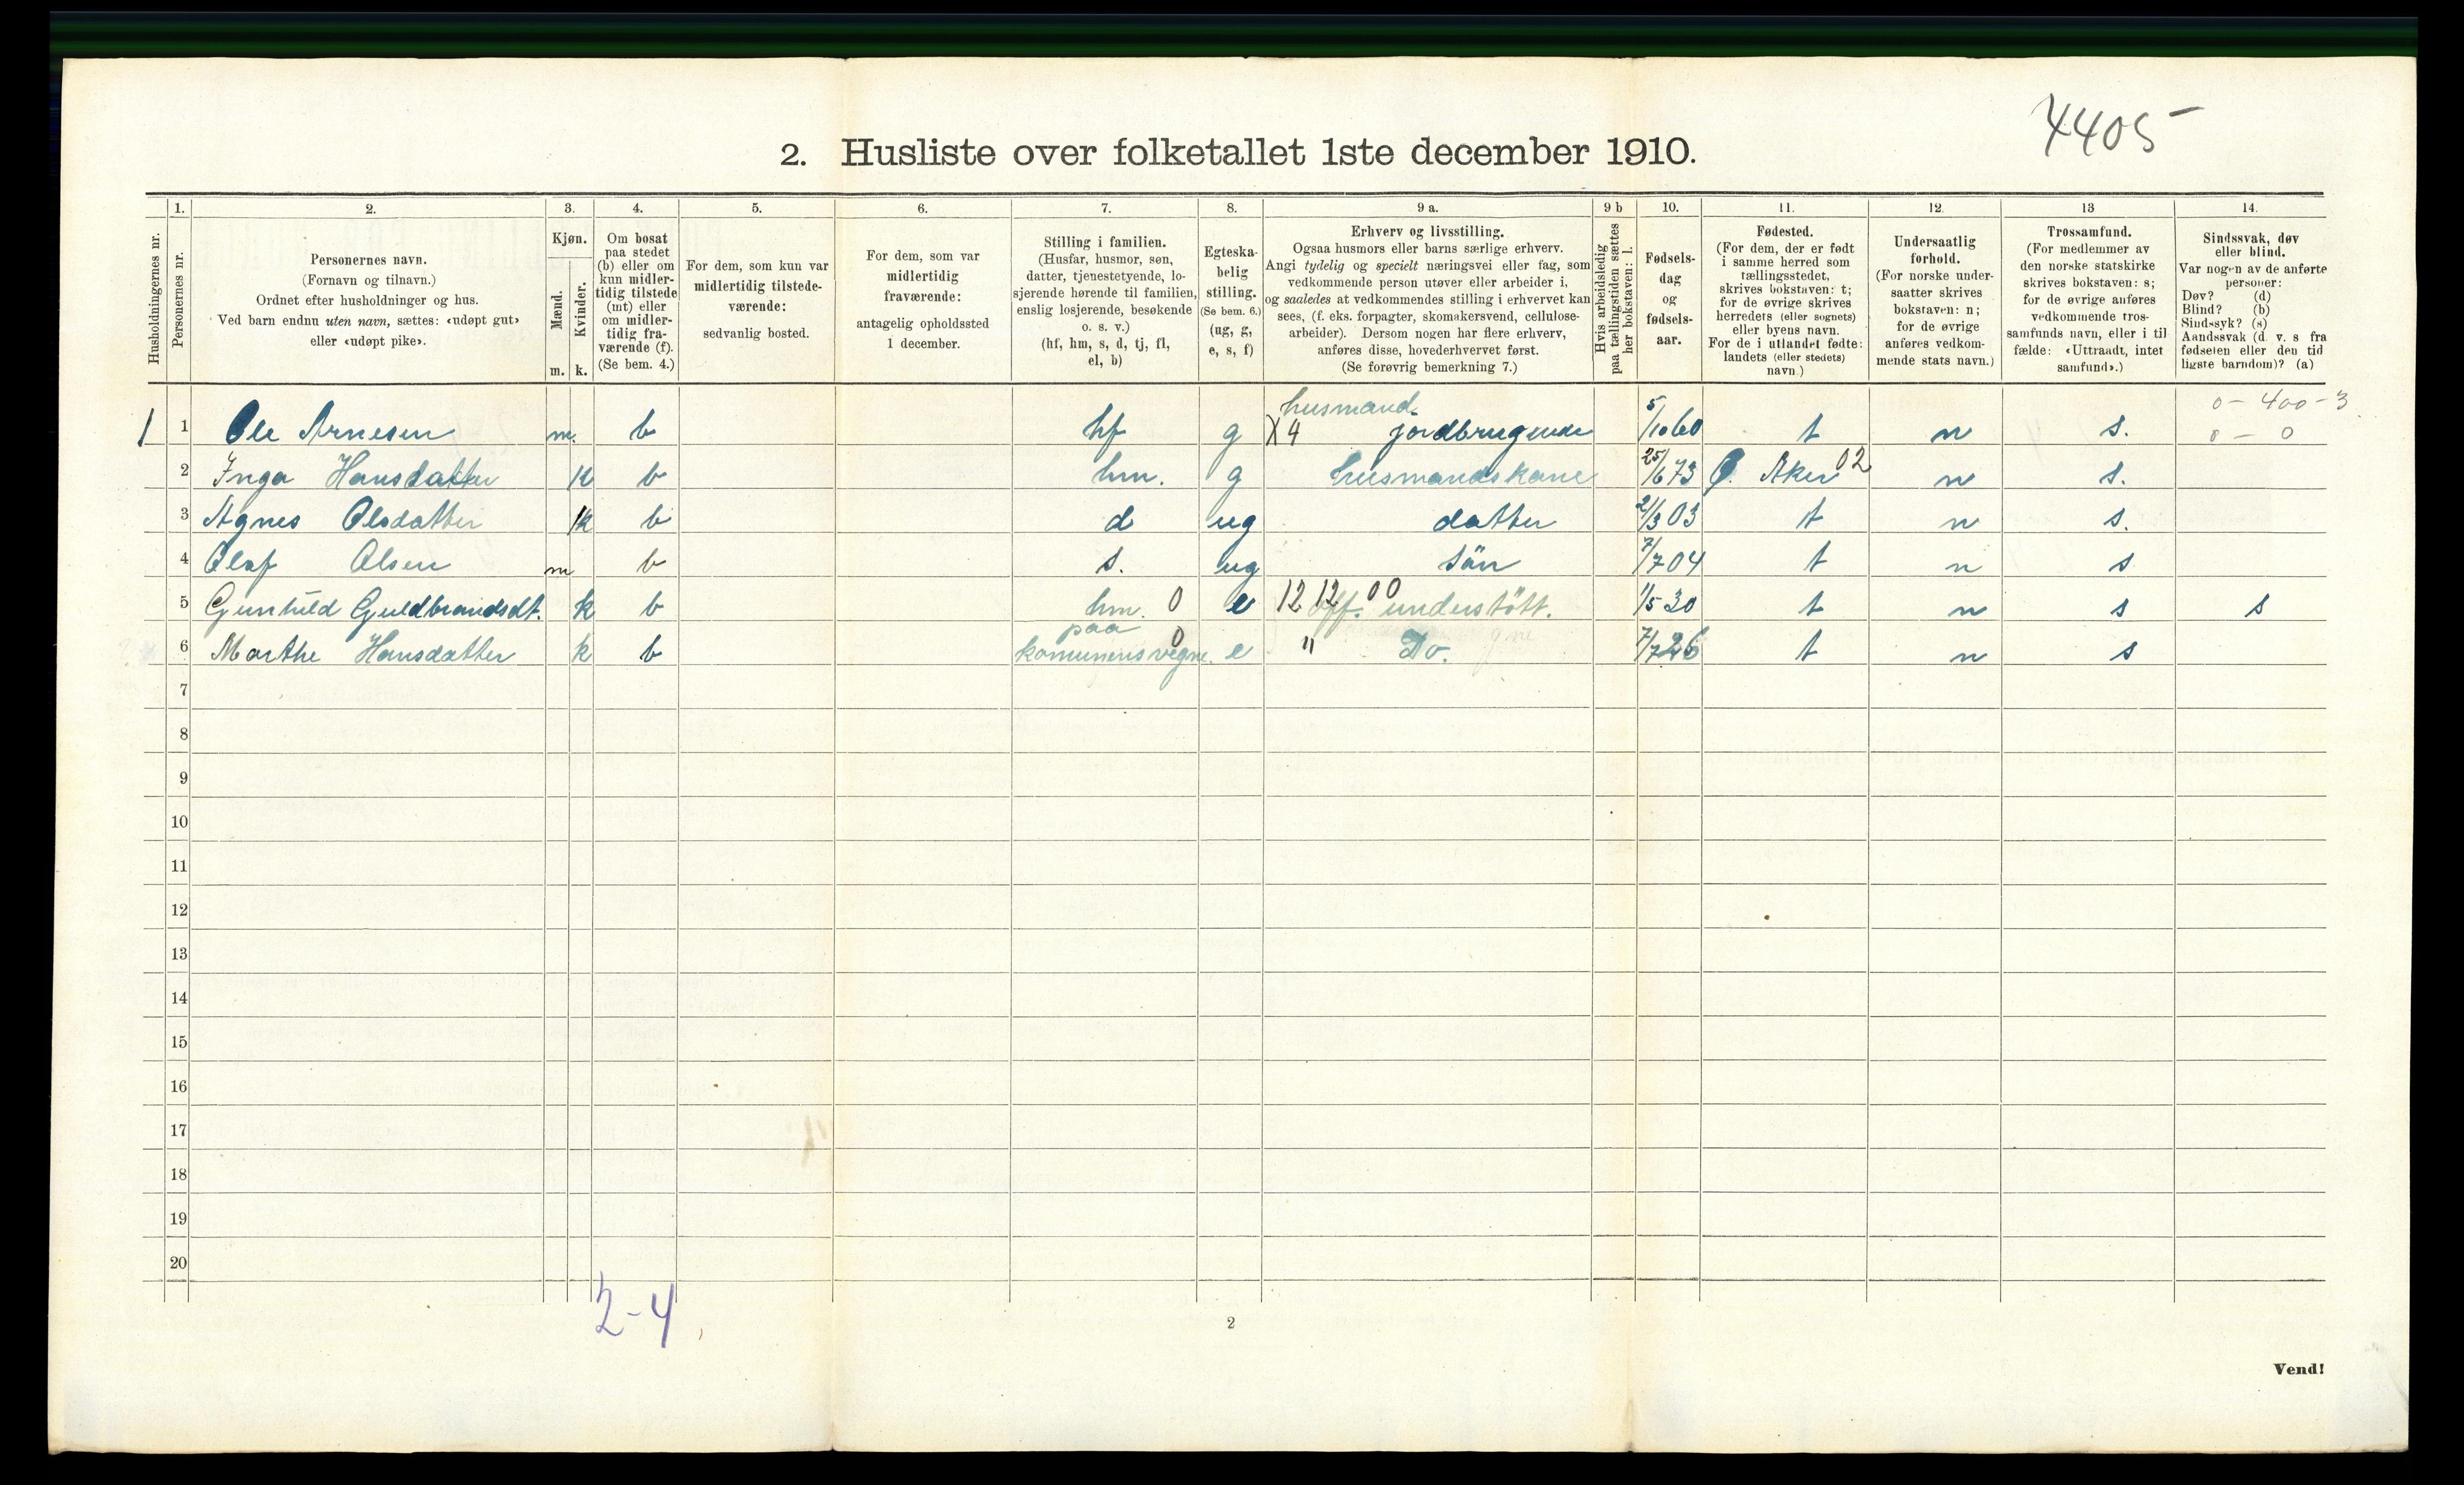 4405
2. Husliste over folketallet 1ste december 1910.
Husholdningernes nr.
1.
Personernes nr.
2.
Personernes navn.
(Fornavn og tilnavn.)
Ordnet efter husholdninger og hus.
Ved barn endnu uten navn, sættes: «udøpt gut»
eller «udøpt pike».
3.
Kjøn.
Mænd.
Kvinder.
m. k.
4.
Om bosat
paa stedet
(b) eller om
kun midler-
tidig tilstede
(mt) eller
om midler-
tidig fra-
værende (f).
(Se bem. 4.)
5.
For dem, som kun var
midlertidig tilstede-
værende:
sedvanlig bosted.
6.
For dem, som var
midlertidig
fraværende:
antagelig opholdssted
1 december.
7.
Stilling i familien.
(Husfar, husmor, søn,
datter, tjenestetyende, lo-
sjerende hørende til familien,
enslig losjerende, besøkende
o. s. v.)
(hf, hm, s, d, tj, fl,
el, b)
8.
Egteska-
belig
stilling.
(Se bem. 6.)
(ug, g,
e, s, f)
9 a.
Erhverv og livsstilling.
Ogsaa husmors eller barns særlige erhverv.
Angi tydelig og specielt næringsvei eller fag, som
vedkommende person utøver eller arbeider i,
og saaledes at vedkommendes stilling i erhvervet kan
sees, (f. eks. forpagter, skomakersvend, cellulose-
arbeider). Dersom nogen har flere erhverv,
anføres disse, hovederhvervet først.
(Se forøvrig bemerkning 7.)
9 b
Hvis arbeidsledig
paa tællingstiden sættes
her bokstaven: l.
10.
Fødsels-
dag
og
fødsels-
aar.
11.
Fødested.
(For dem, der er født
i samme herred som
tællingsstedet,
skrives bokstaven: t;
for de øvrige skrives
herredets (eller sognets)
eller byens navn.
For de i utlandet fødte:
landets (eller stedets)
navn.)
12.
Undersaatlig
forhold.
(For norske under-
saatter skrives
bokstaven: n;
for de øvrige
anføres vedkom-
mende stats navn.)
13
Trossamfund.
(For medlemmer av
den norske statskirke
skrives bokstaven: s;
for de øvrige anføres
vedkommende tros-
samfunds navn, eller i til
fælde: «Uttraadt, intet
samfund».)
14.
Sindssvak, døv
eller blind.
Var nogen av de anførte
personer:
Døv? (d)
Blind? (b)
Sindssyk? (s)
Aandssvak (d. v. s fra
fødselen eller den tid
ligste barndom)? (a)
husmand. 0 - 400 - 3
1 1 Ole Arnesen m. b hf g X 4 jordbrugende 5/10 60 t n s. 0 - 0
2 Inga Hansdatter k b hm. g husmandskone 25/6 73 Ø. Aker 02 n s.
3 Agnes Olsdatter k b d ug datter 21/3 03 t n s.
4 Olaf Olsen m b s. ug sön 7/7 04 t n s
5 Gunhild Guldbrandsdt. k b hm. 0 e 12 12 00 off. understött. 1/5 30 t n s s
paa
6 Marthe Hansdatter k b komunens vegne. 0 e " Do. 7/7 26 t n s
7
8
9
10
11
12
13
14
15
16
17
18
19
20
2-4
2
Vend!